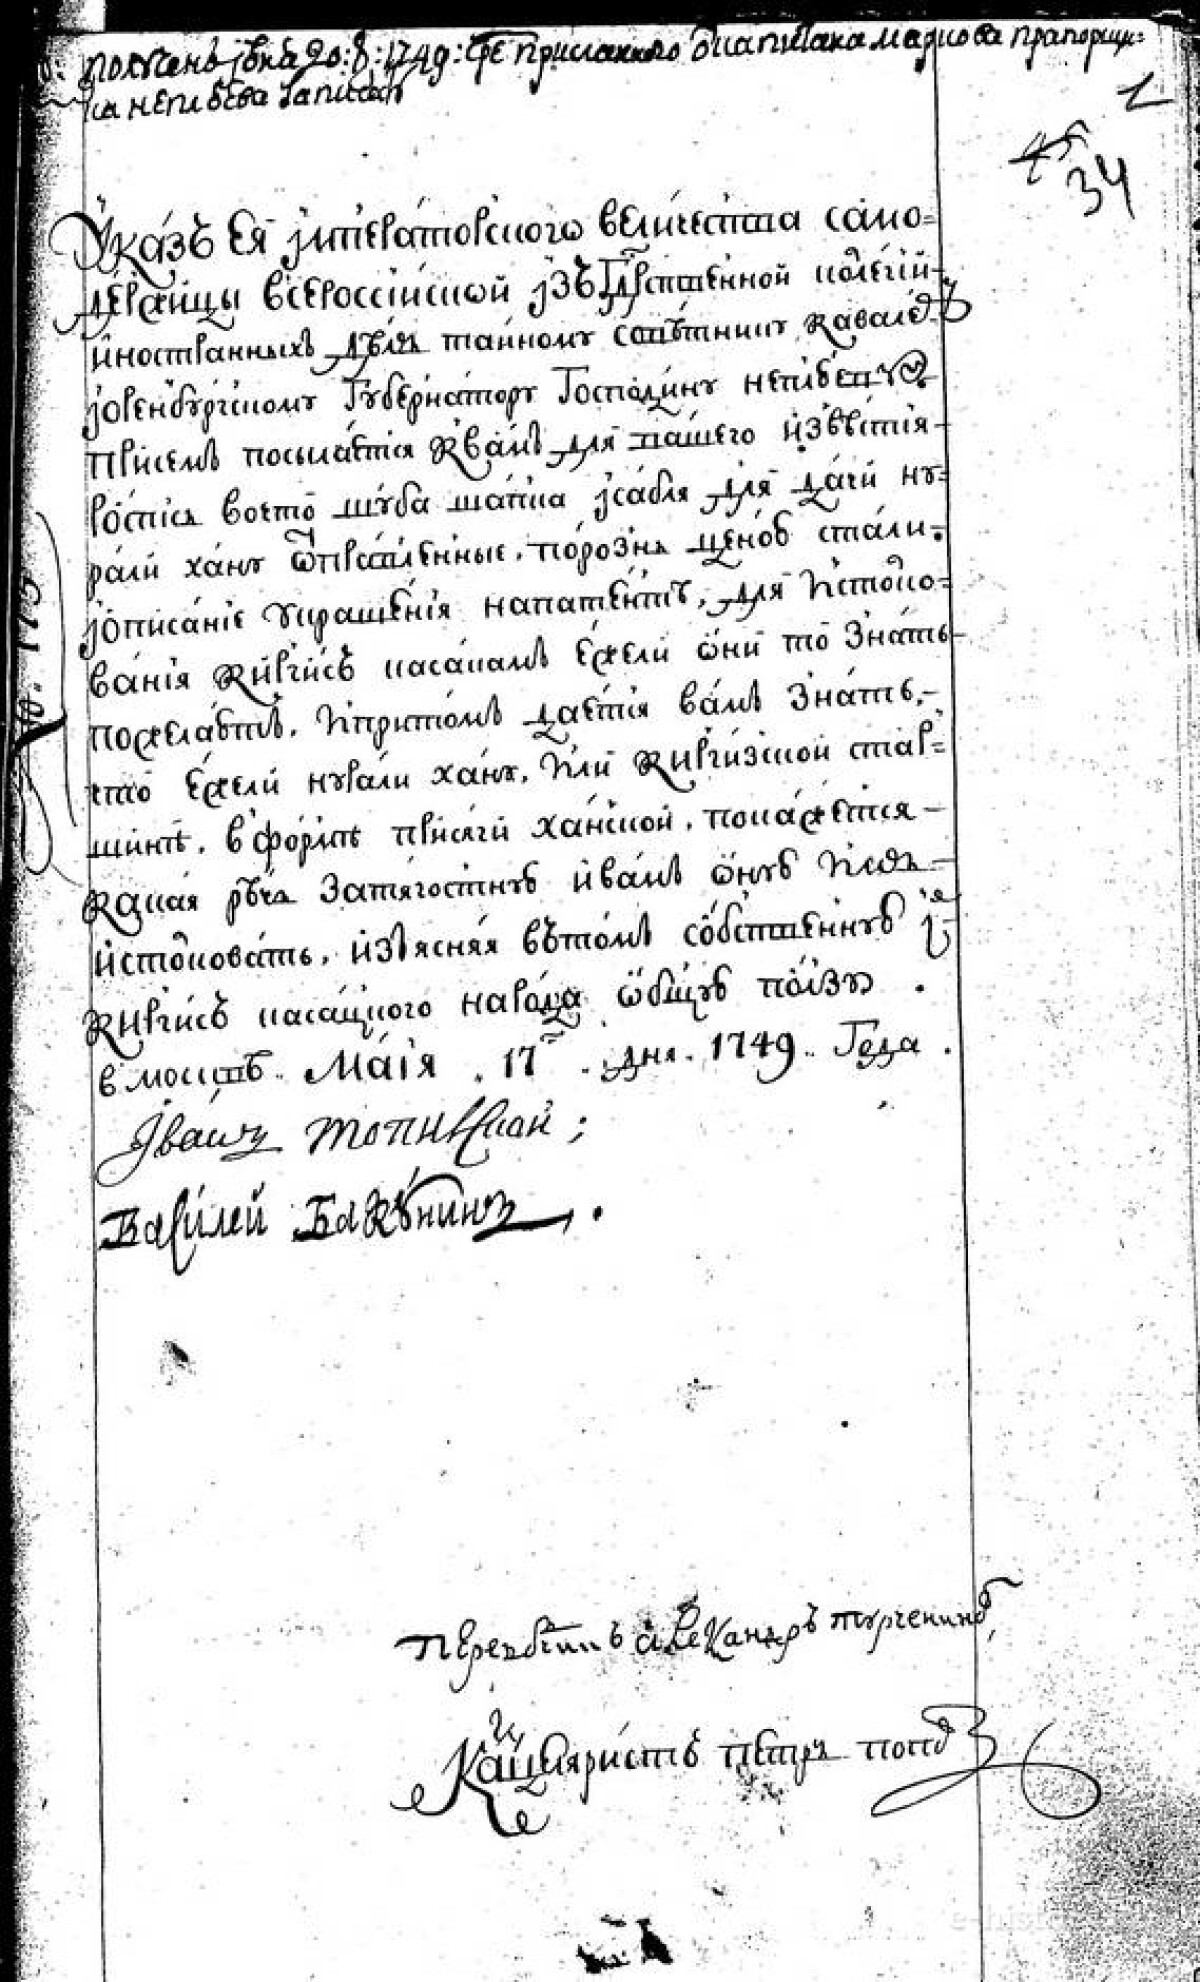 полученъ июня 20: д: 1749: чрез присланного от капитана Маркова прапорщи=
ка Неплюева записат
1
34
Указъ Ея императорского величества само=
держицы всероссийской изъ Гдрственной колегии
иностранныхъ делъ тайному советнику кавалеру
и оренбургскому губернатору господину Неплюеву
присемъ посылается къ вамъ для вашего известия
роспись во что шуба шапка и сабля для дачи ну=
рали хану отправленные, порознь ценою стали.
и описание украшения на патенте, для истолко=
вания киргисъ касакамъ ежели они то знать
пожелаютъ, и притомъ дается вамъ знать,
что ежели нурали хану, или киргизской стар=
шине, в форме присяги ханской, покажется
какая речь за тягостную и вамъ оную имъ
истолковать, изъясняя въ томъ собственную ея и
киргисъ касацкого народа общую ползу.
в москве. Маия. 17 го. дня. 1749. Года.
Иванъ Топильской;
Василей Бакунинъ.
перевотчикъ Александръ Турченинов
Канцеляристъ Петръ Поповъ